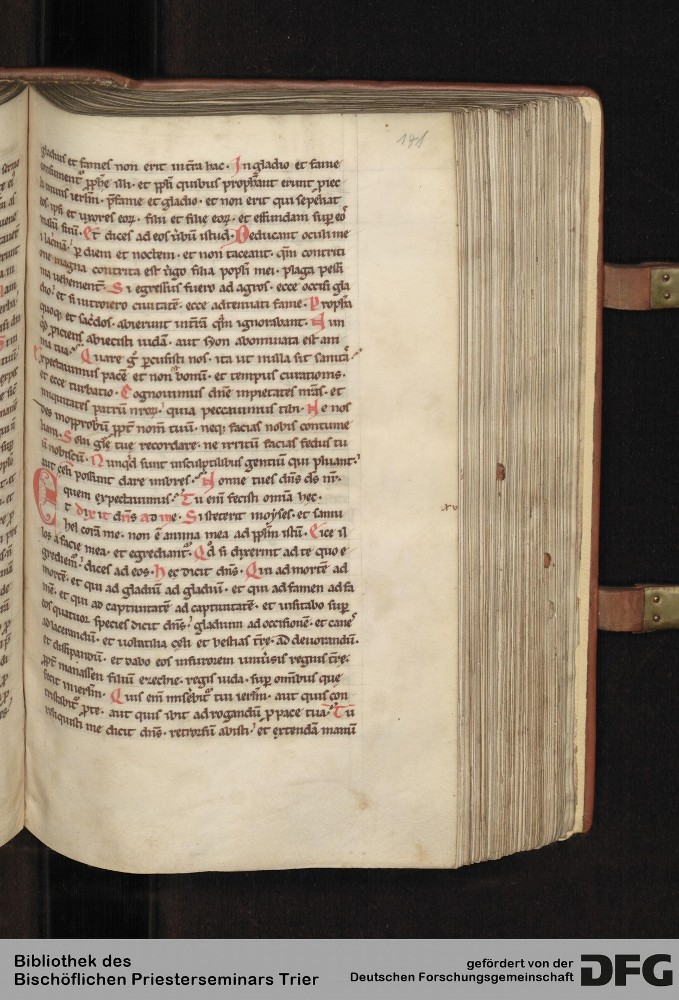 191
gladius et fames non erit in t̄ra hac. In gladio et fame
consumentᷣ ꝓph̄e illi. et ppl̄i quibus prophant̄ erunt ꝓiec
in viis ierl̄m. p̄ fame et gladio. et non erit qui sepeliat
eos. ip̄i et uxores eoꝝ. filii et filie eoꝝ. et effundam sup̄ eos
malū suū. Et dices ad eos ūbū istud. Deducant oculi me
i lacrimā. ꝑ diem et noctem. et non taceant. qm̄ contriti
one magna contrita est ūgo filia popl̄i mei. plaga pessi
ma uehement̄. Si egressus fuero ad agros. ecce occisi gla
dio. et si introiero ciuitatē. ecce adtenuati fame. Propha
quoqꝫ et sac̄dos. abierunt in t̄ram quā ignorabant. Nun
qd̄ ꝓiciens abiecisti iudā. aut syon abominata est ani
ma tua. Quare gͦ ꝑcussisti nos. ita ut nulla sit sanita
Expectauimus pacē et non ē bonū. et tempus curationis.
et ecce turbatio. Cognouimus dn̄e impietates nr̄as. et
iniquitates patrū nroꝝ. quia peccauimus tibi. Ne nos
des in opprobriū ꝓpt̄ nom̄ tuū. neqꝫ facias nobis contume
liam. Solii glē tue recordare. ne irritū facias fedus tu
ū nobiscū. Nunqd̄ sunt in sculptilibus gentiū qui pluant.
aut celi possunt dare imbres. Nonne tu es dn̄s ds̄ nr̄.
quem expectauimus. Tu em̄ fecisti omnia hec.
Et dixit dn̄s ad me. Si steterit moyses. et samu
xv
hel corā me. non ē anima mea ad ppl̄m istū. Eice il
los a facie mea. et egrediantᷣ. Qd̄ si dixerint ad te quo e
grediemᷣ. dices ad eos. Hec dicit dn̄s. Qui ad mortē ad
mortē. et qui ad gladiū ad gladiū. et qui ad famen ad fa
mē. et qui ad captiuitatē ad captiuitatē. et uisitabo sup̄
eos quatuor species dicit dn̄s. gladium ad occisionē. et canes
ad lacerandū. et uolatilia celi et bestias t̄re. ad deuorandū.
et dissipandū. et dabo eos in furorem uniūsis regnis t̄re.
ꝓpt̄ manassen filiū ezechie. regis iuda. sup̄ omnibus que
fecit in ierl̄m. Quis em̄ miserebitᷣ tui ierl̄m. aut quis con
tristabitᷣ ꝓ te. aut quis ibit ad rogandū ꝓ pace tua. Tu
reliquisti me dicit dn̄s. retrorsū abisti. et extendā manū
Bibliothek des
Bischöflichen Priesterseminars Trier
gefördert von der
Deutschen Forschungsgemeinschaft
DFG